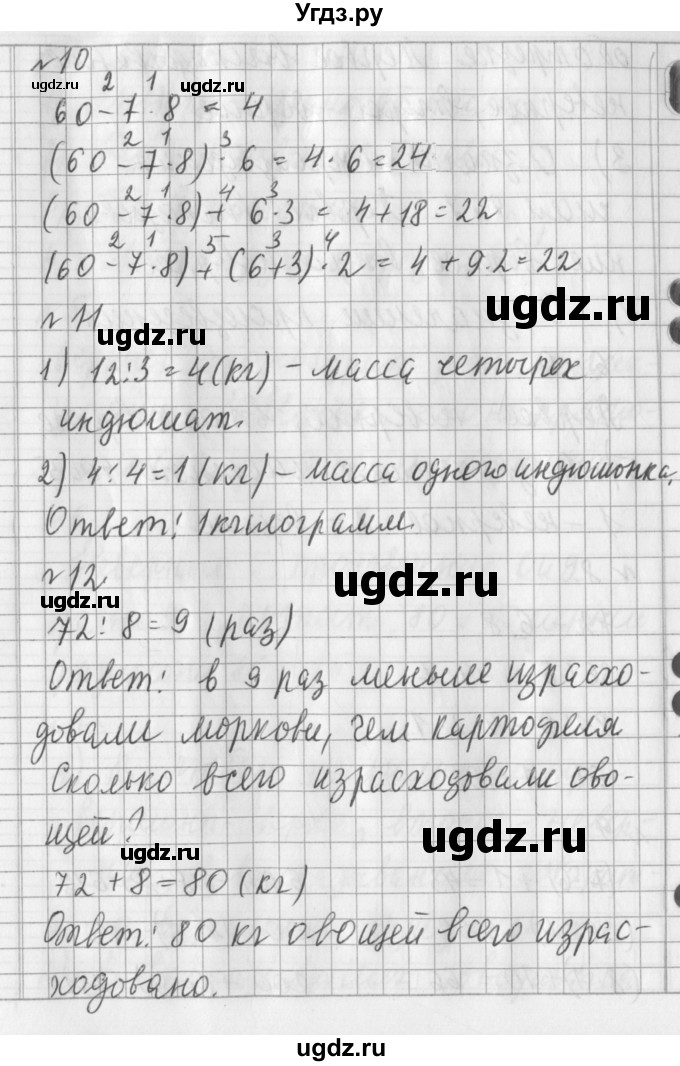 Угдз.ру
№10
ugdz.ru ugdz.ru
2 1
60 - 7 · 8 = 4
2 1 3
(60 - 7 · 8) · 6 = 4 · 6 = 24
2 1 4 3
(60 - 7 · 8) + 6 · 3 = 4 + 18 = 22
2 1 5 3 4
(60 - 7 · 8) + (6 + 3) · 2 = 4 + 9 · 2 = 22
ugdz.ru
№11
ugdz.ru
1) 12 : 3 = 4 (кг) - масса четырех
индюшат.
2) 4 : 4 = 1 (кг) - масса одного индюшонка.
Ответ: 1 килограмм.
№12
ugdz.ru
ugdz.ru
72 : 8 = 9 (раз)
Ответ: в 9 раз меньше израсхо-
довали моркови, чем картофеля
Сколько всего израсходовали ово-
щей?
ugdz.ru
ugdz.ru
72 + 8 = 80 (кг)
Ответ: 80 кг овощей всего израс-
ходовано.
ugdz.ru